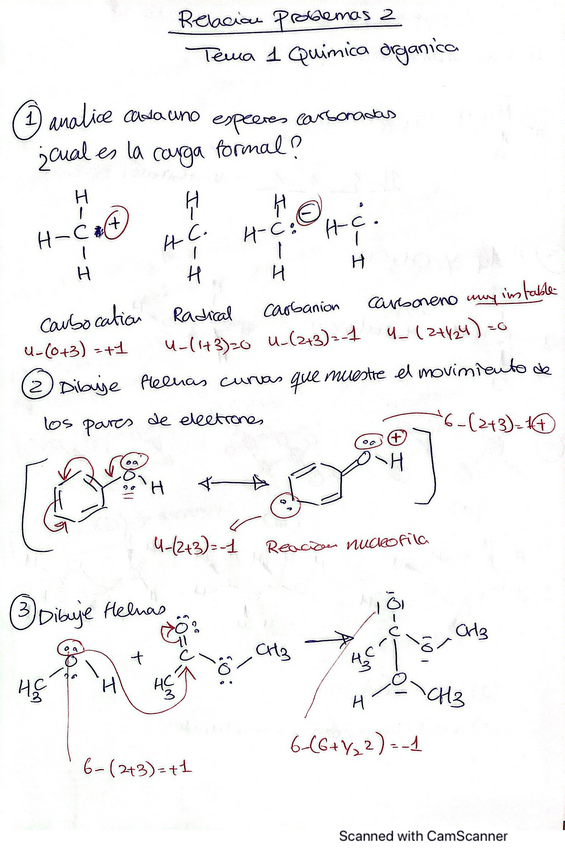 Relacion Problemas 2
Tema 1 Quimica organica
1 analice cada uno especies carbonadas
¿cual es la carga formal?
H H H
H-C + H-C· H-C: - H-C·
H H H H
Carbocation Radical Carbanion Carboneno muy instable
4-(0+3)=+1 4-(1+3)=0 4-(2+3)=-1 4-(2+1/2 4)=0
2 Dibuje flechas curvas que muestre el movimiento de
los pares de electrones
6-(2+3)=1+
O H O + H
4-(2+3)=-1 Reacion nucleofila
3 Dibuje flechas
H3C O H + O C H3C O CH3
O C H3C O CH3 H O CH3
6-(2+3)=+1
6-(6+1/2 2)=-1
Scanned with CamScanner